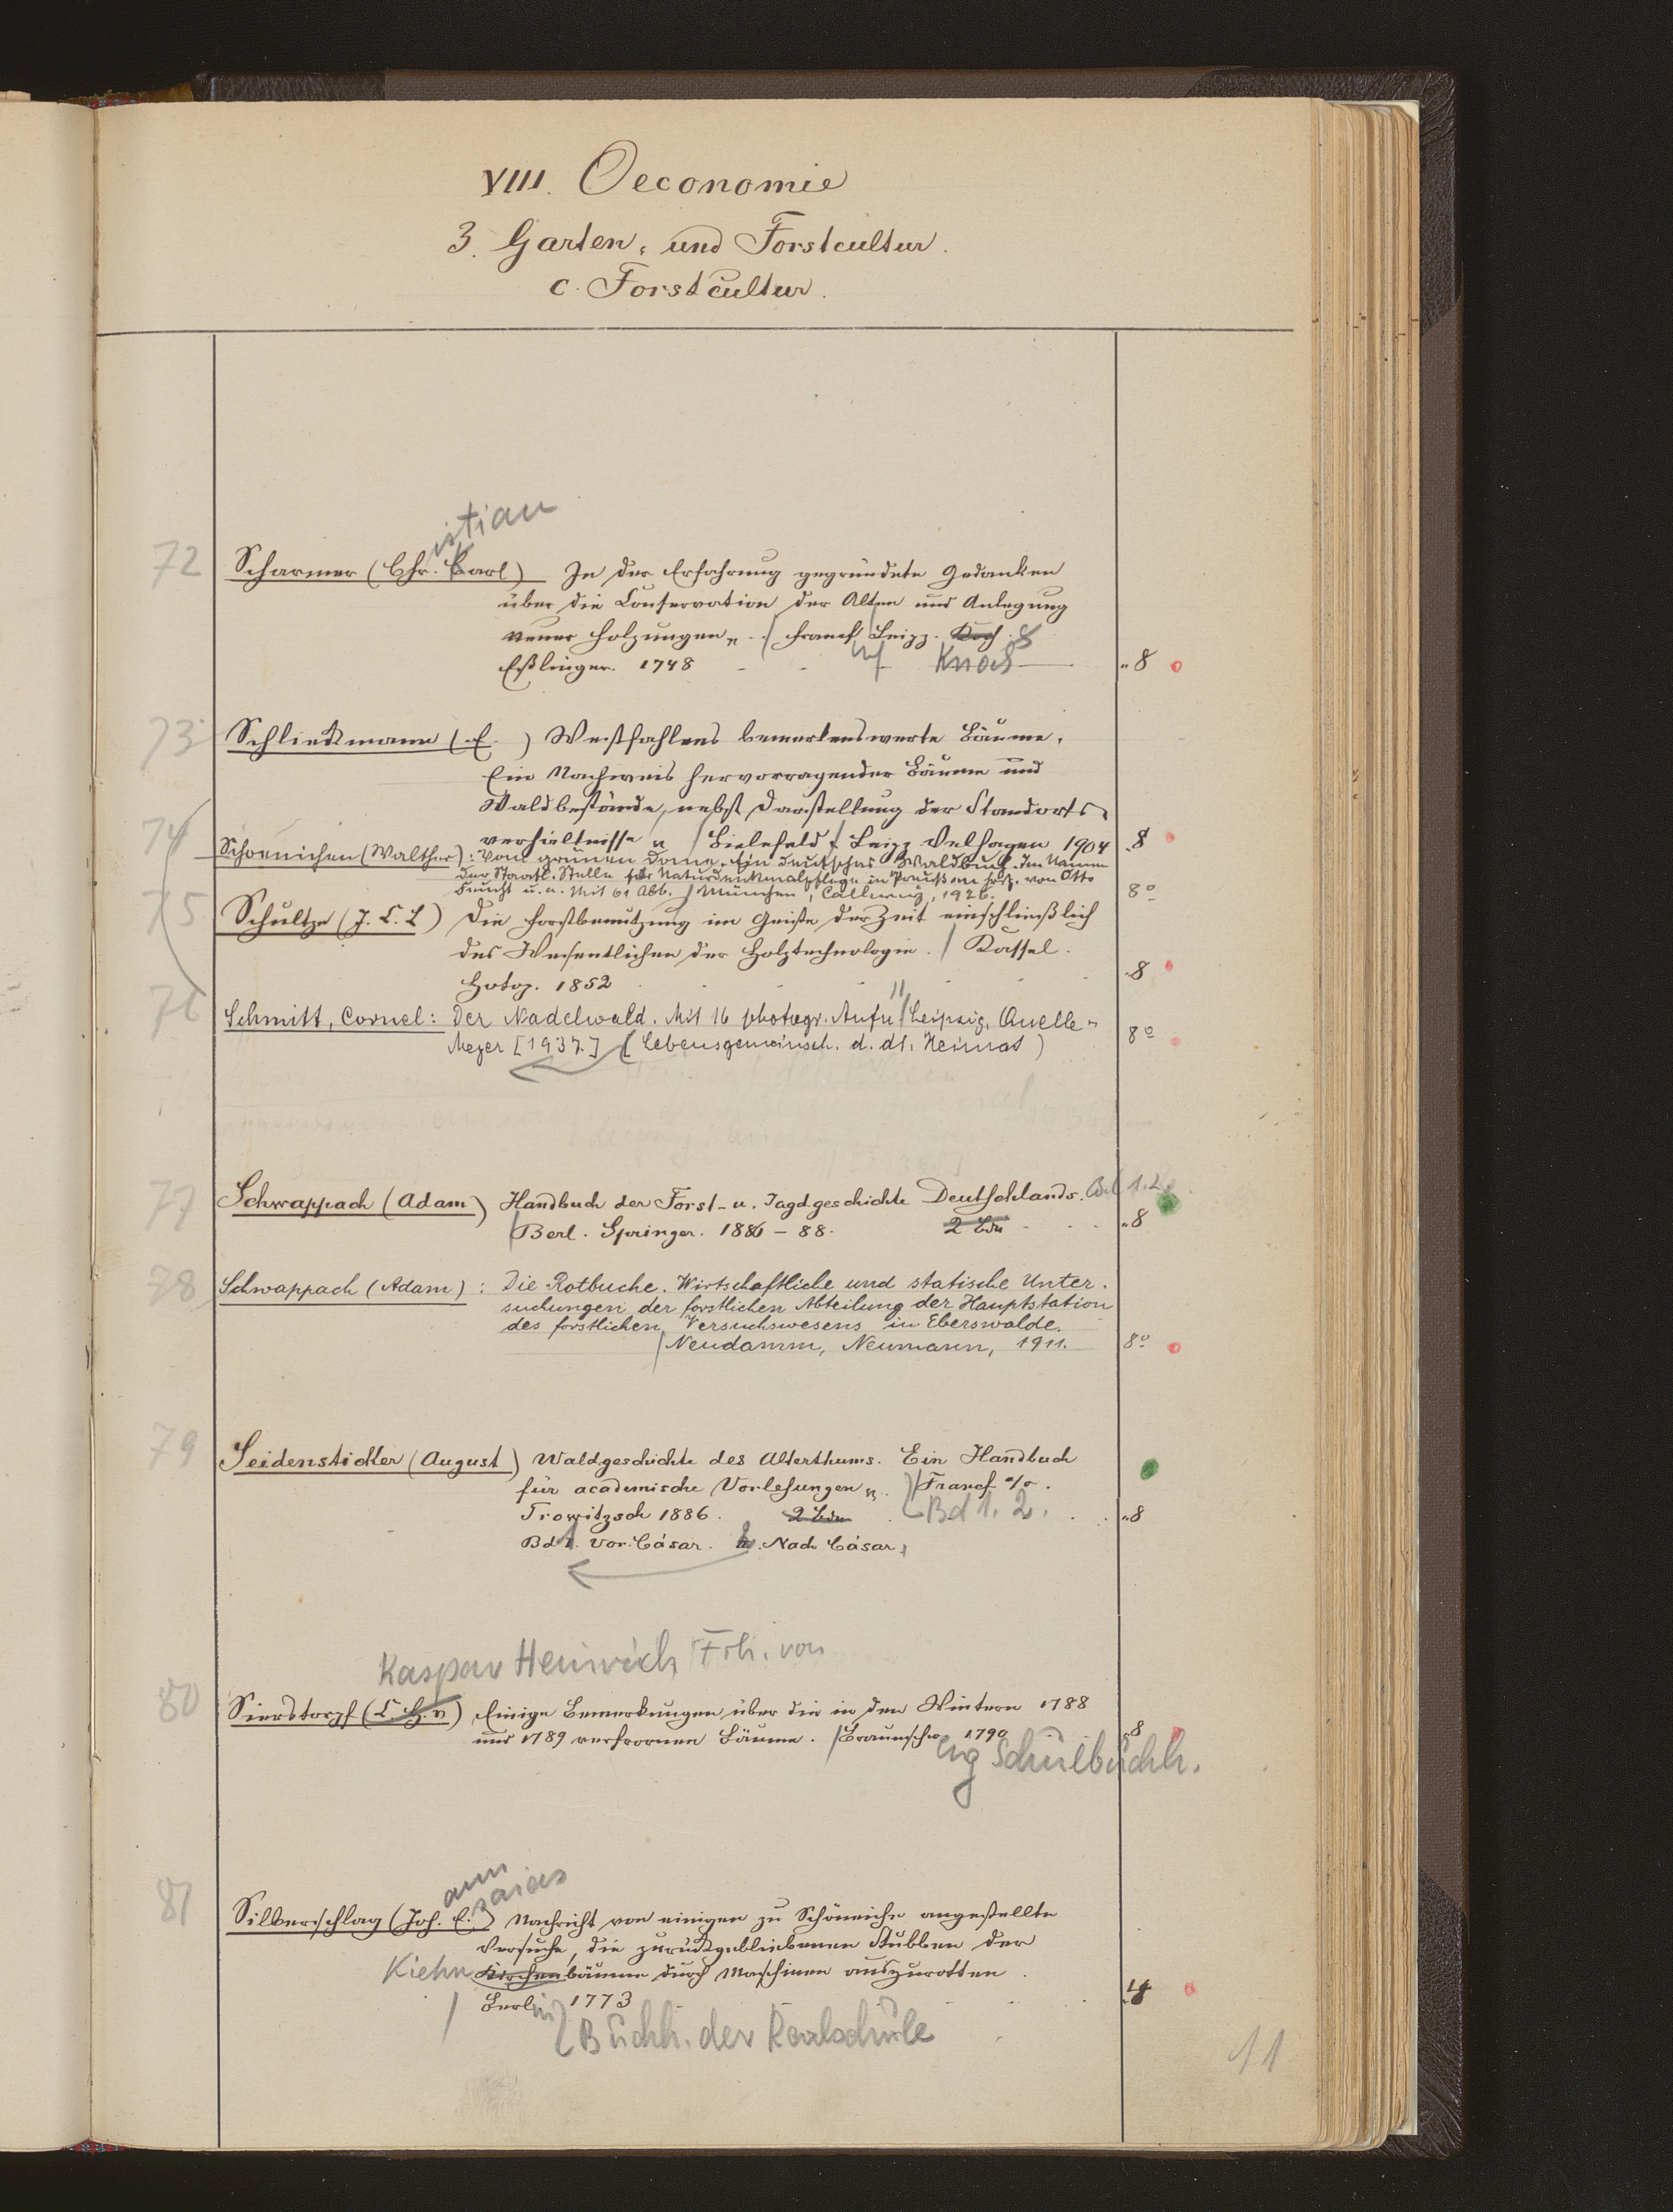 VIII. Oeconomie
3. Garten- und Forstcultur.
c. Forstcultur.
istian
72 Scharmer (Chr. Carl) In der Erfahrung gegründete Gedanken
über die Conservation der Alten und Anlegung
neuer Holzungen. Francf Leipz. Koch
Eßlinger. 1748 Knoch 8
73 Schliekmann (E. ) Westfahlens bemerkenswerte Bäume.
Ein Nachweis hervorragender Bäume und
Waldbestände, nebst Darstellung der Standorts-
74 verhältnisse Bielefeld & Leipz Velhagen 1904 8
Schoenichen (Walther): Vom grünen Dome. Ein deutsches Waldbuch. Im Namen
der Staatl. Stelle für Naturdenkmalpflege in Preußen hrsg. von Otto
Feucht u. a. Mit 61 Abb. München, Callwey, 1926. 8º
75 Schultze (J. C. L) Die Forstbenutzung im Geiste der Zeit einschließlich
des Wesentlichen der Holztechnologie. Kassel.
Hotop. 1852 8
76 Schmitt, Cornel: Der Nadelwald. Mit 16 photogr. Aufn Leipzig, Quelle -
Meyer [1937.] (Lebensgemeinsch. d. dt. Heimat) 8º
77 Schwappach (Adam) Handbuch der Forst- u. Jagdgeschichte Deutschlands. Bd 1.2.
Berl. Springer. 1886 - 88. 2 Bde 8
78 Schwappach (Adam): Die Rotbuche. Wirtschaftliche und statische Unter-
suchungen der forstlichen Abteilung der Hauptstation
des forstlichen Versuchswesens in Eberswalde.
Neudamm, Neumann, 1911. 8º
79 Seidensticker (August) Waldgeschichte des Alterthums. Ein Handbuch
für academische Vorlesungen. Francf a/o.
Trowitzsch 1886. 2 Bde Bd 1. 2. 8
Bd 1. Vor Cäsar. 2. Nach Cäsar.
Kaspar Heinrich Frh. von
80 Sierstorpf (C. H. v) Einige Bemerkungen über die in den Wintern 1788
und 1789 erfrornen Bäume. Braunschw 1790 8
Schulbuchh.
ann saias
81 Silberschlag (Joh. E.) Nachricht von einigen zu Schöneiche angestellte
Versuche, die zurückgebliebenen Stubben der
Kiehn Kirchenbäume durch Maschinen auszurotten.
Berlin 1773 4
Buchh. der Realschule
11